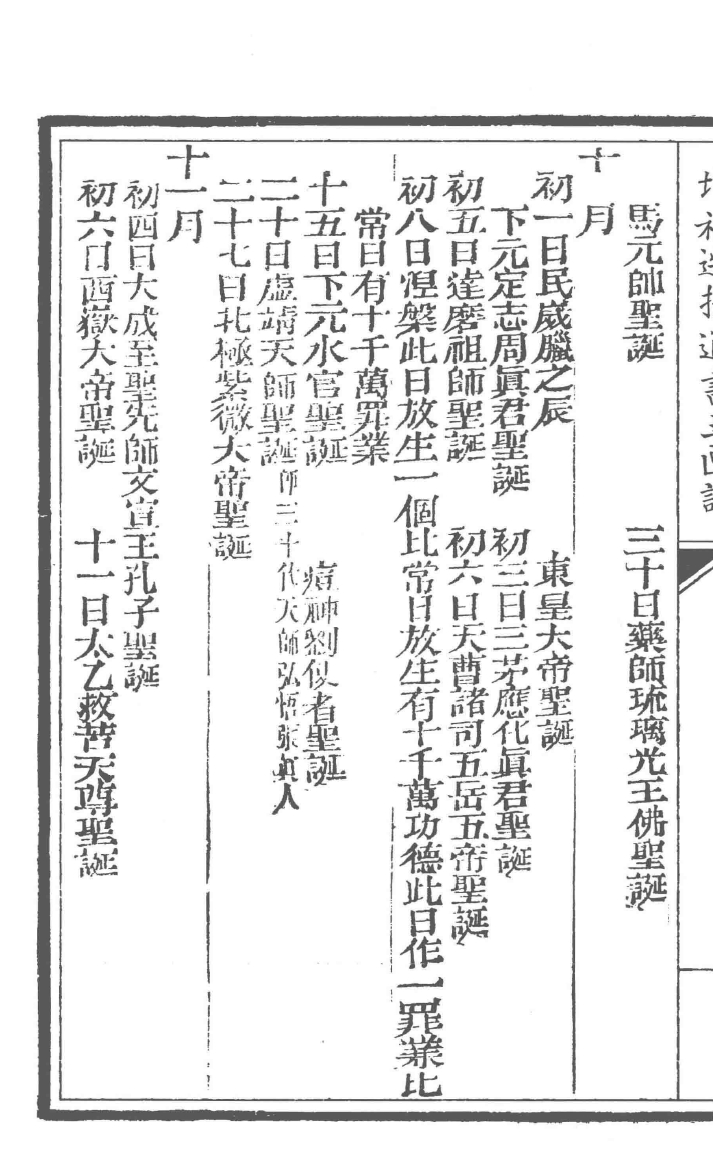 馬元帥聖誕　三十日藥師琉璃光王佛聖誕
十月
初一日民歲臘之辰　東皇大帝聖誕
下元定志周眞君聖誕　初三日三茅應化眞君聖誕
初五日達磨祖師聖誕　初六日天曹諸司五岳五帝聖誕
初八日涅槃此日放生一個比常日放生有十千萬功德此日作一罪業比
常日有十千萬罪業
十五日下元水官聖誕　痘神劉使者聖誕
二十日虛靖天師聖誕師三十代天師弘悟張眞人
二十七日北極紫微大帝聖誕
十一月
初四日大成至聖先師文宣王孔子聖誕
初六日西嶽大帝聖誕　十一日太乙救苦天尊聖誕